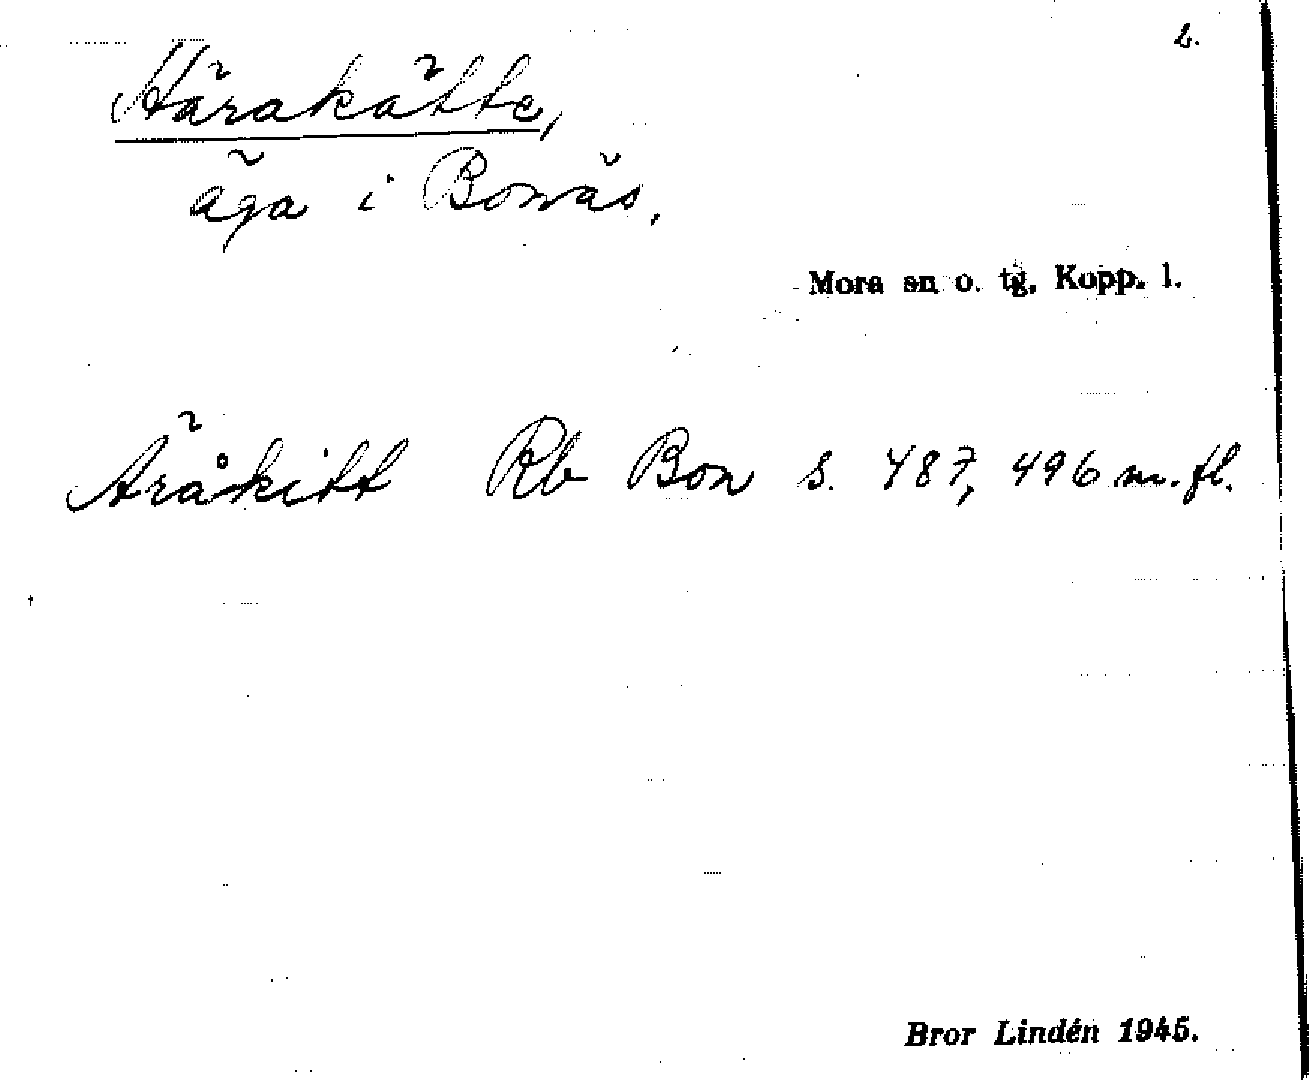 L.
Härakätte,
äga i Bonäs.
Mora sn o. tg, Kopp. l.
Äråkitt Rb Bon s. 487, 496 m.fl.
Bror Lindén 1945.